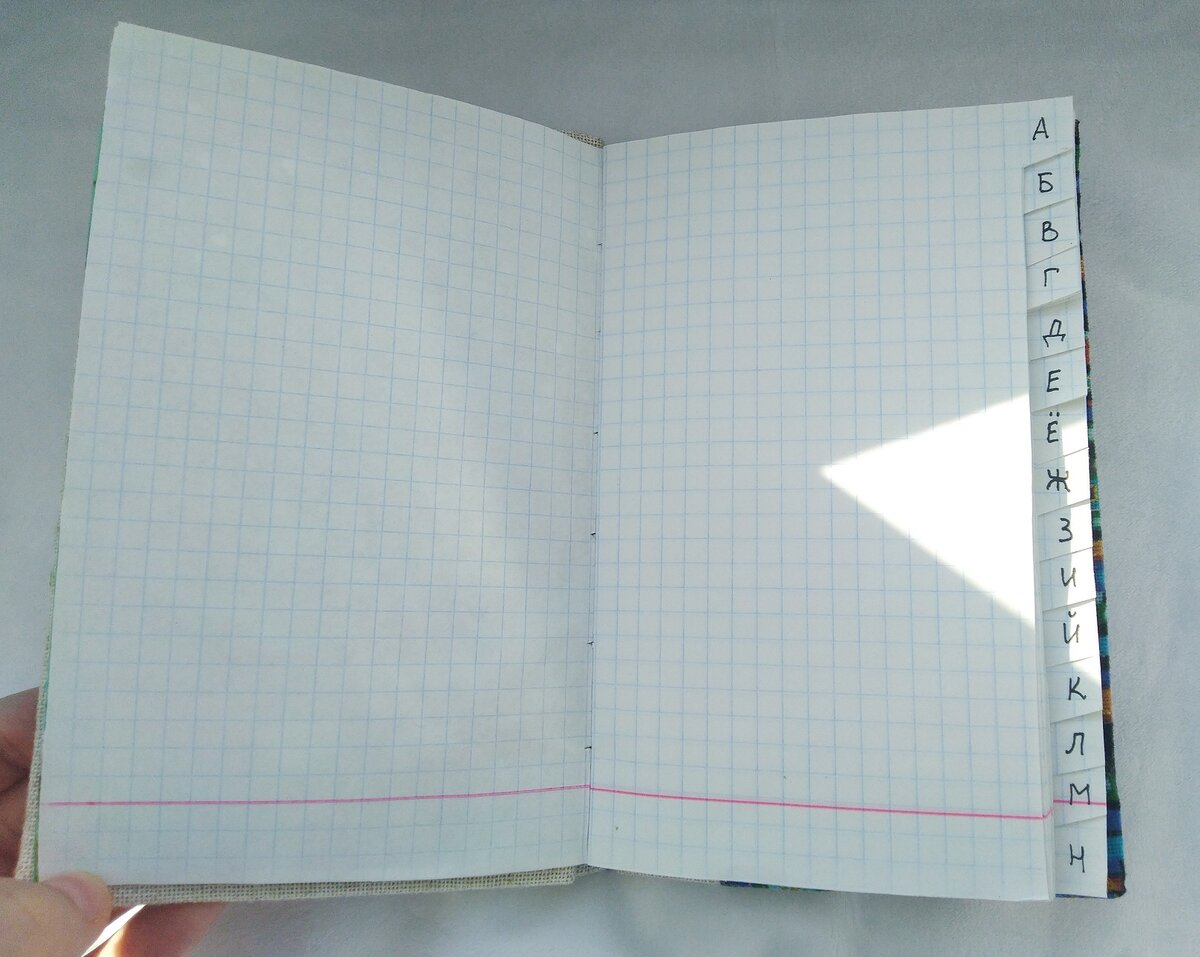 А
Б
В
Г
Д
Е
Ё
Ж
З
И
Й
К
Л
М
Н